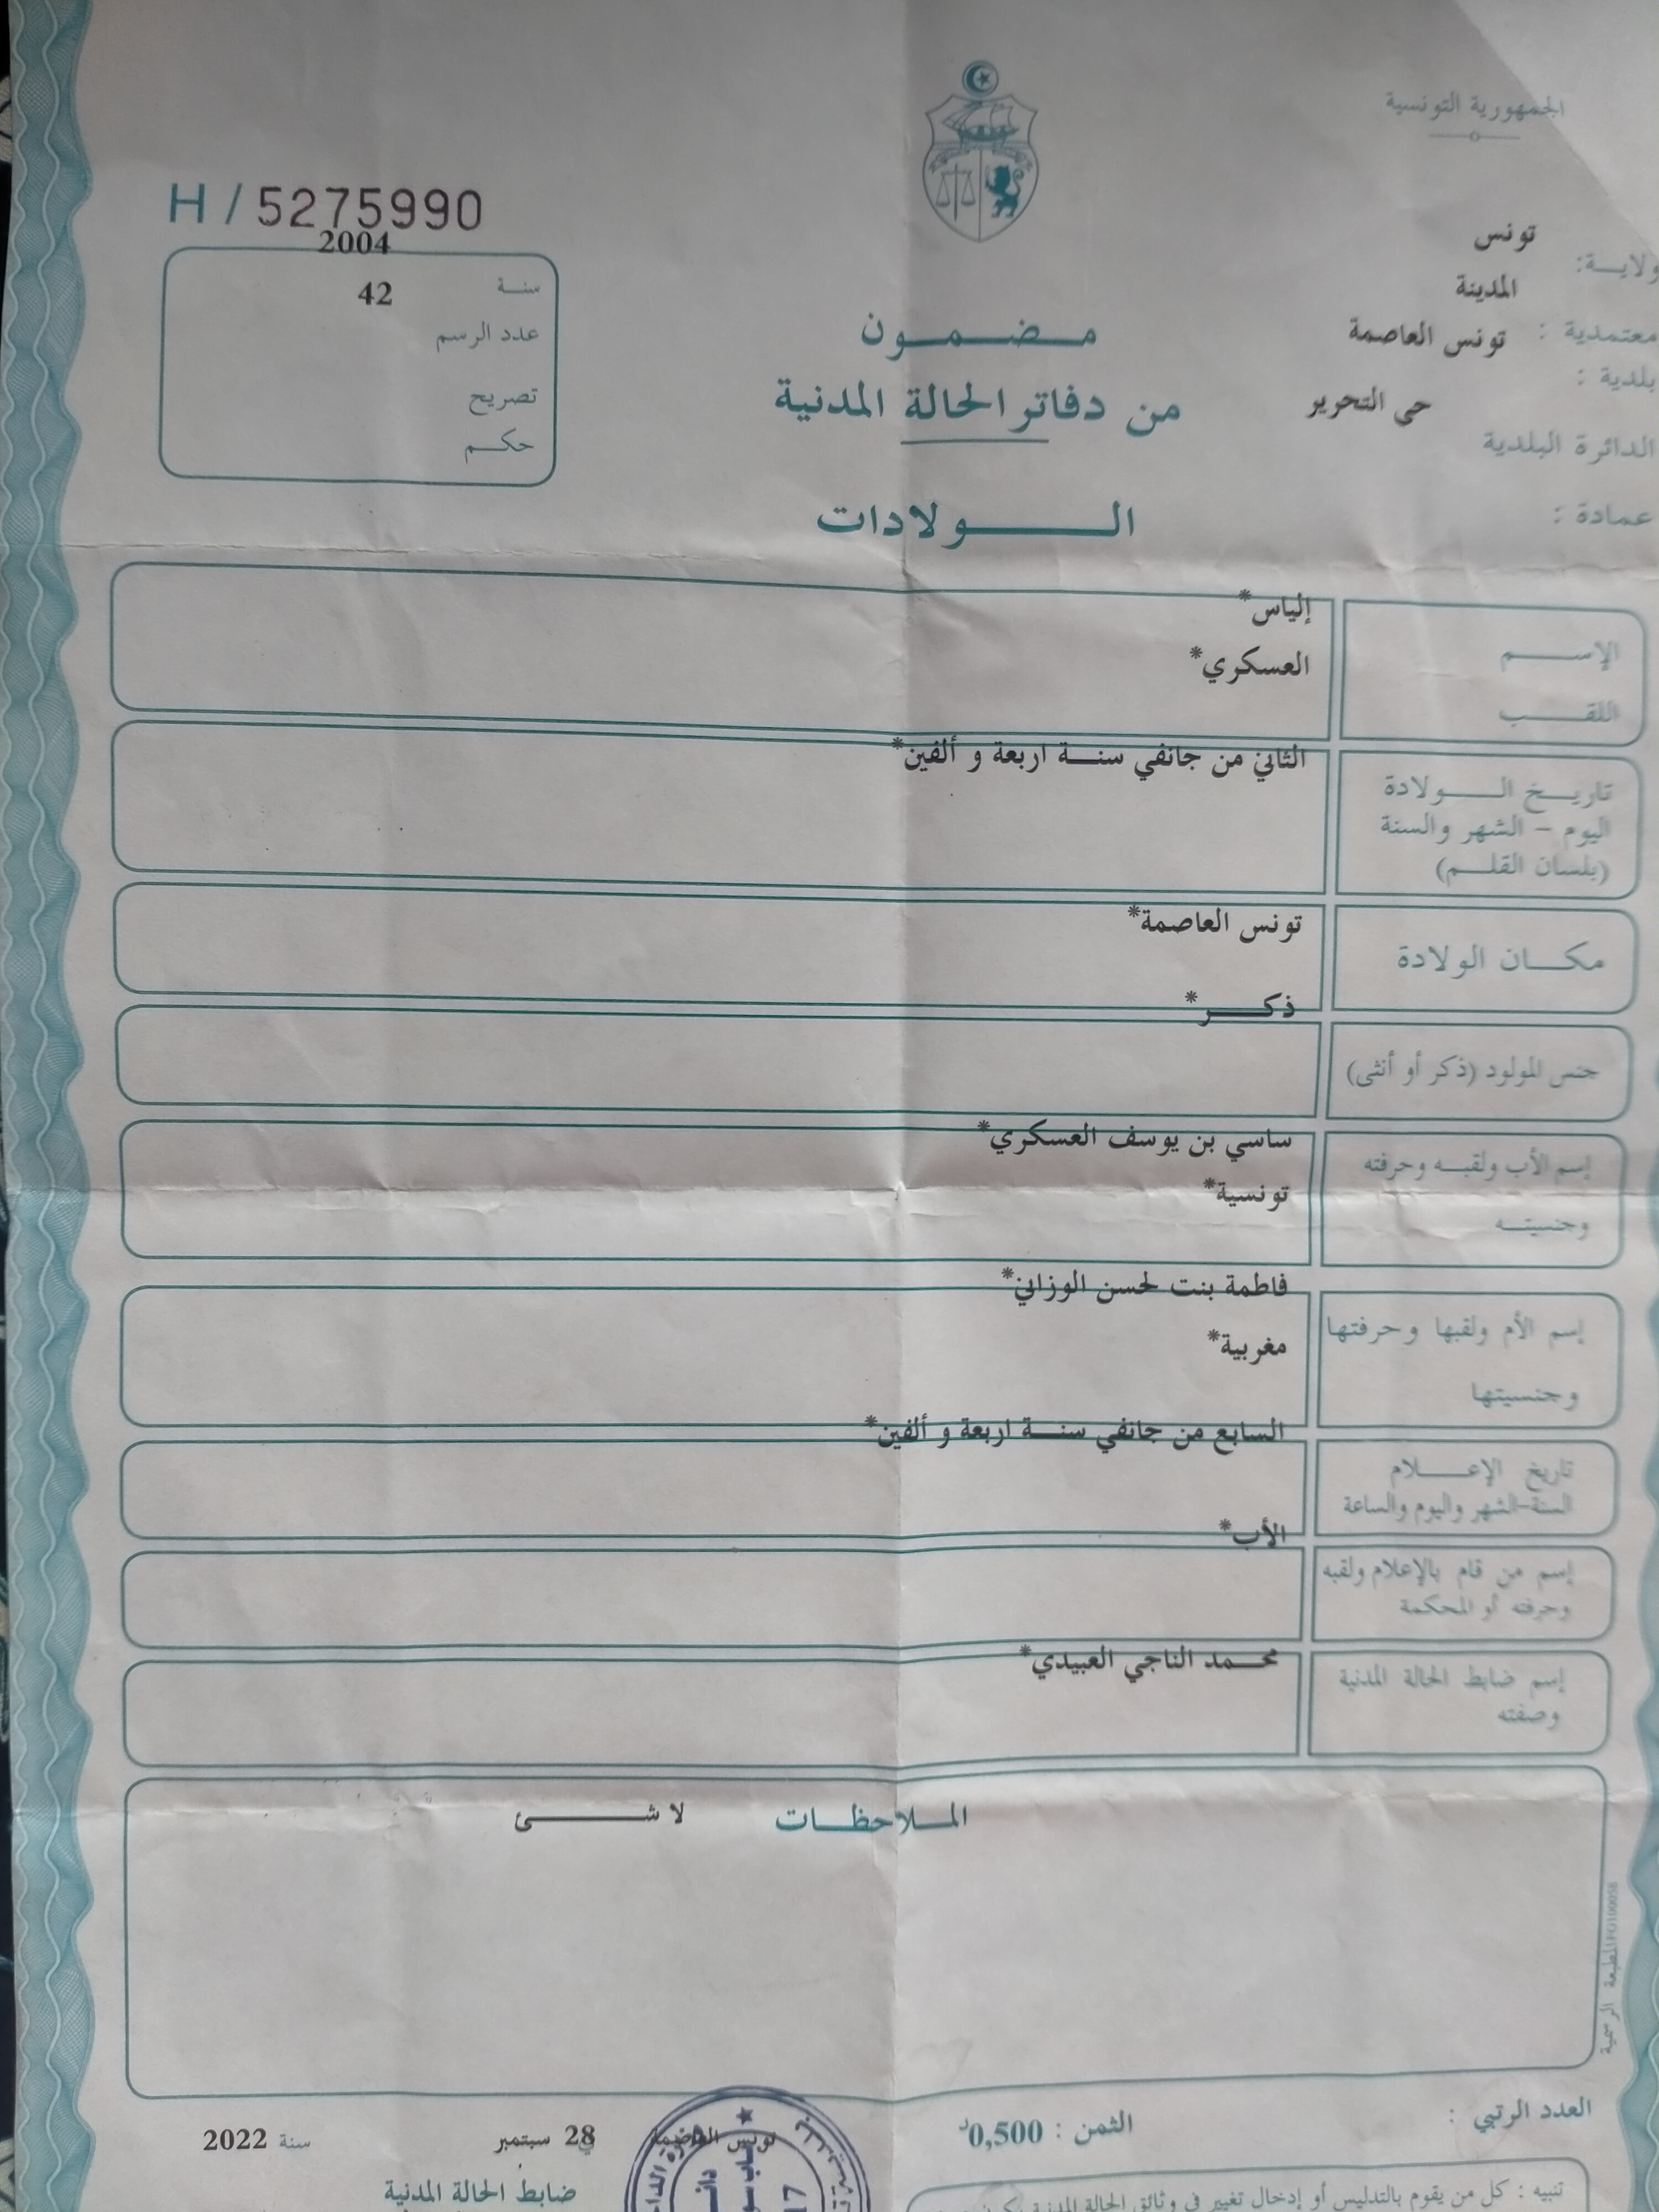 الجمهورية التونسية
H / 5275990
ولايــة: تونس
المدينة
معتمدية : تونس العاصمة
بلدية :
حى التحرير
الدائرة البلدية
عمادة :
2004
سنــة
42
عدد الرسم
تصريح
حكــم
مـضـمـون
من دفاتر الحالة المدنية
الــولادات
الإســـم إلياس*
اللقــب العسكري*
تاريــخ الـــولادة الثاني من جانفي سنــة اربعة و ألفين*
اليوم – الشهر والسنة
(بلسان القلــم)
مكــان الولادة تونس العاصمة*
ذكــر*
جنس المولود (ذكر أو أنثى)
ساسي بن يوسف العسكري*
إسم الأب ولقبــه وحرفته
تونسية*
وجنسيتــه
فاطمة بنت لحسن الوزاني*
إسم الأم ولقبها وحرفتها
مغربية*
وجنسيتها
السابع من جانفي سنــة اربعة و ألفين*
تاريخ الإعـــلام
السنة-الشهر واليوم والساعة
الأب*
إسم من قام بالإعلام ولقبه
وحرفته أو المحكمة
محــمد الناجي العبيدي*
إسم ضابط الحالة المدنية
وصفته
الملاحظــات لا شــــئ
المطبعة الرسمية
العدد الرتبي :
الثمن : 0,500د
تونس العاصمة في 28 سبتمبر سنة 2022
ضابط الحالة المدنية
17
تنبيه : كل من يقوم بالتدليس أو إدخال تغيير في وثائق الحالة المدنية